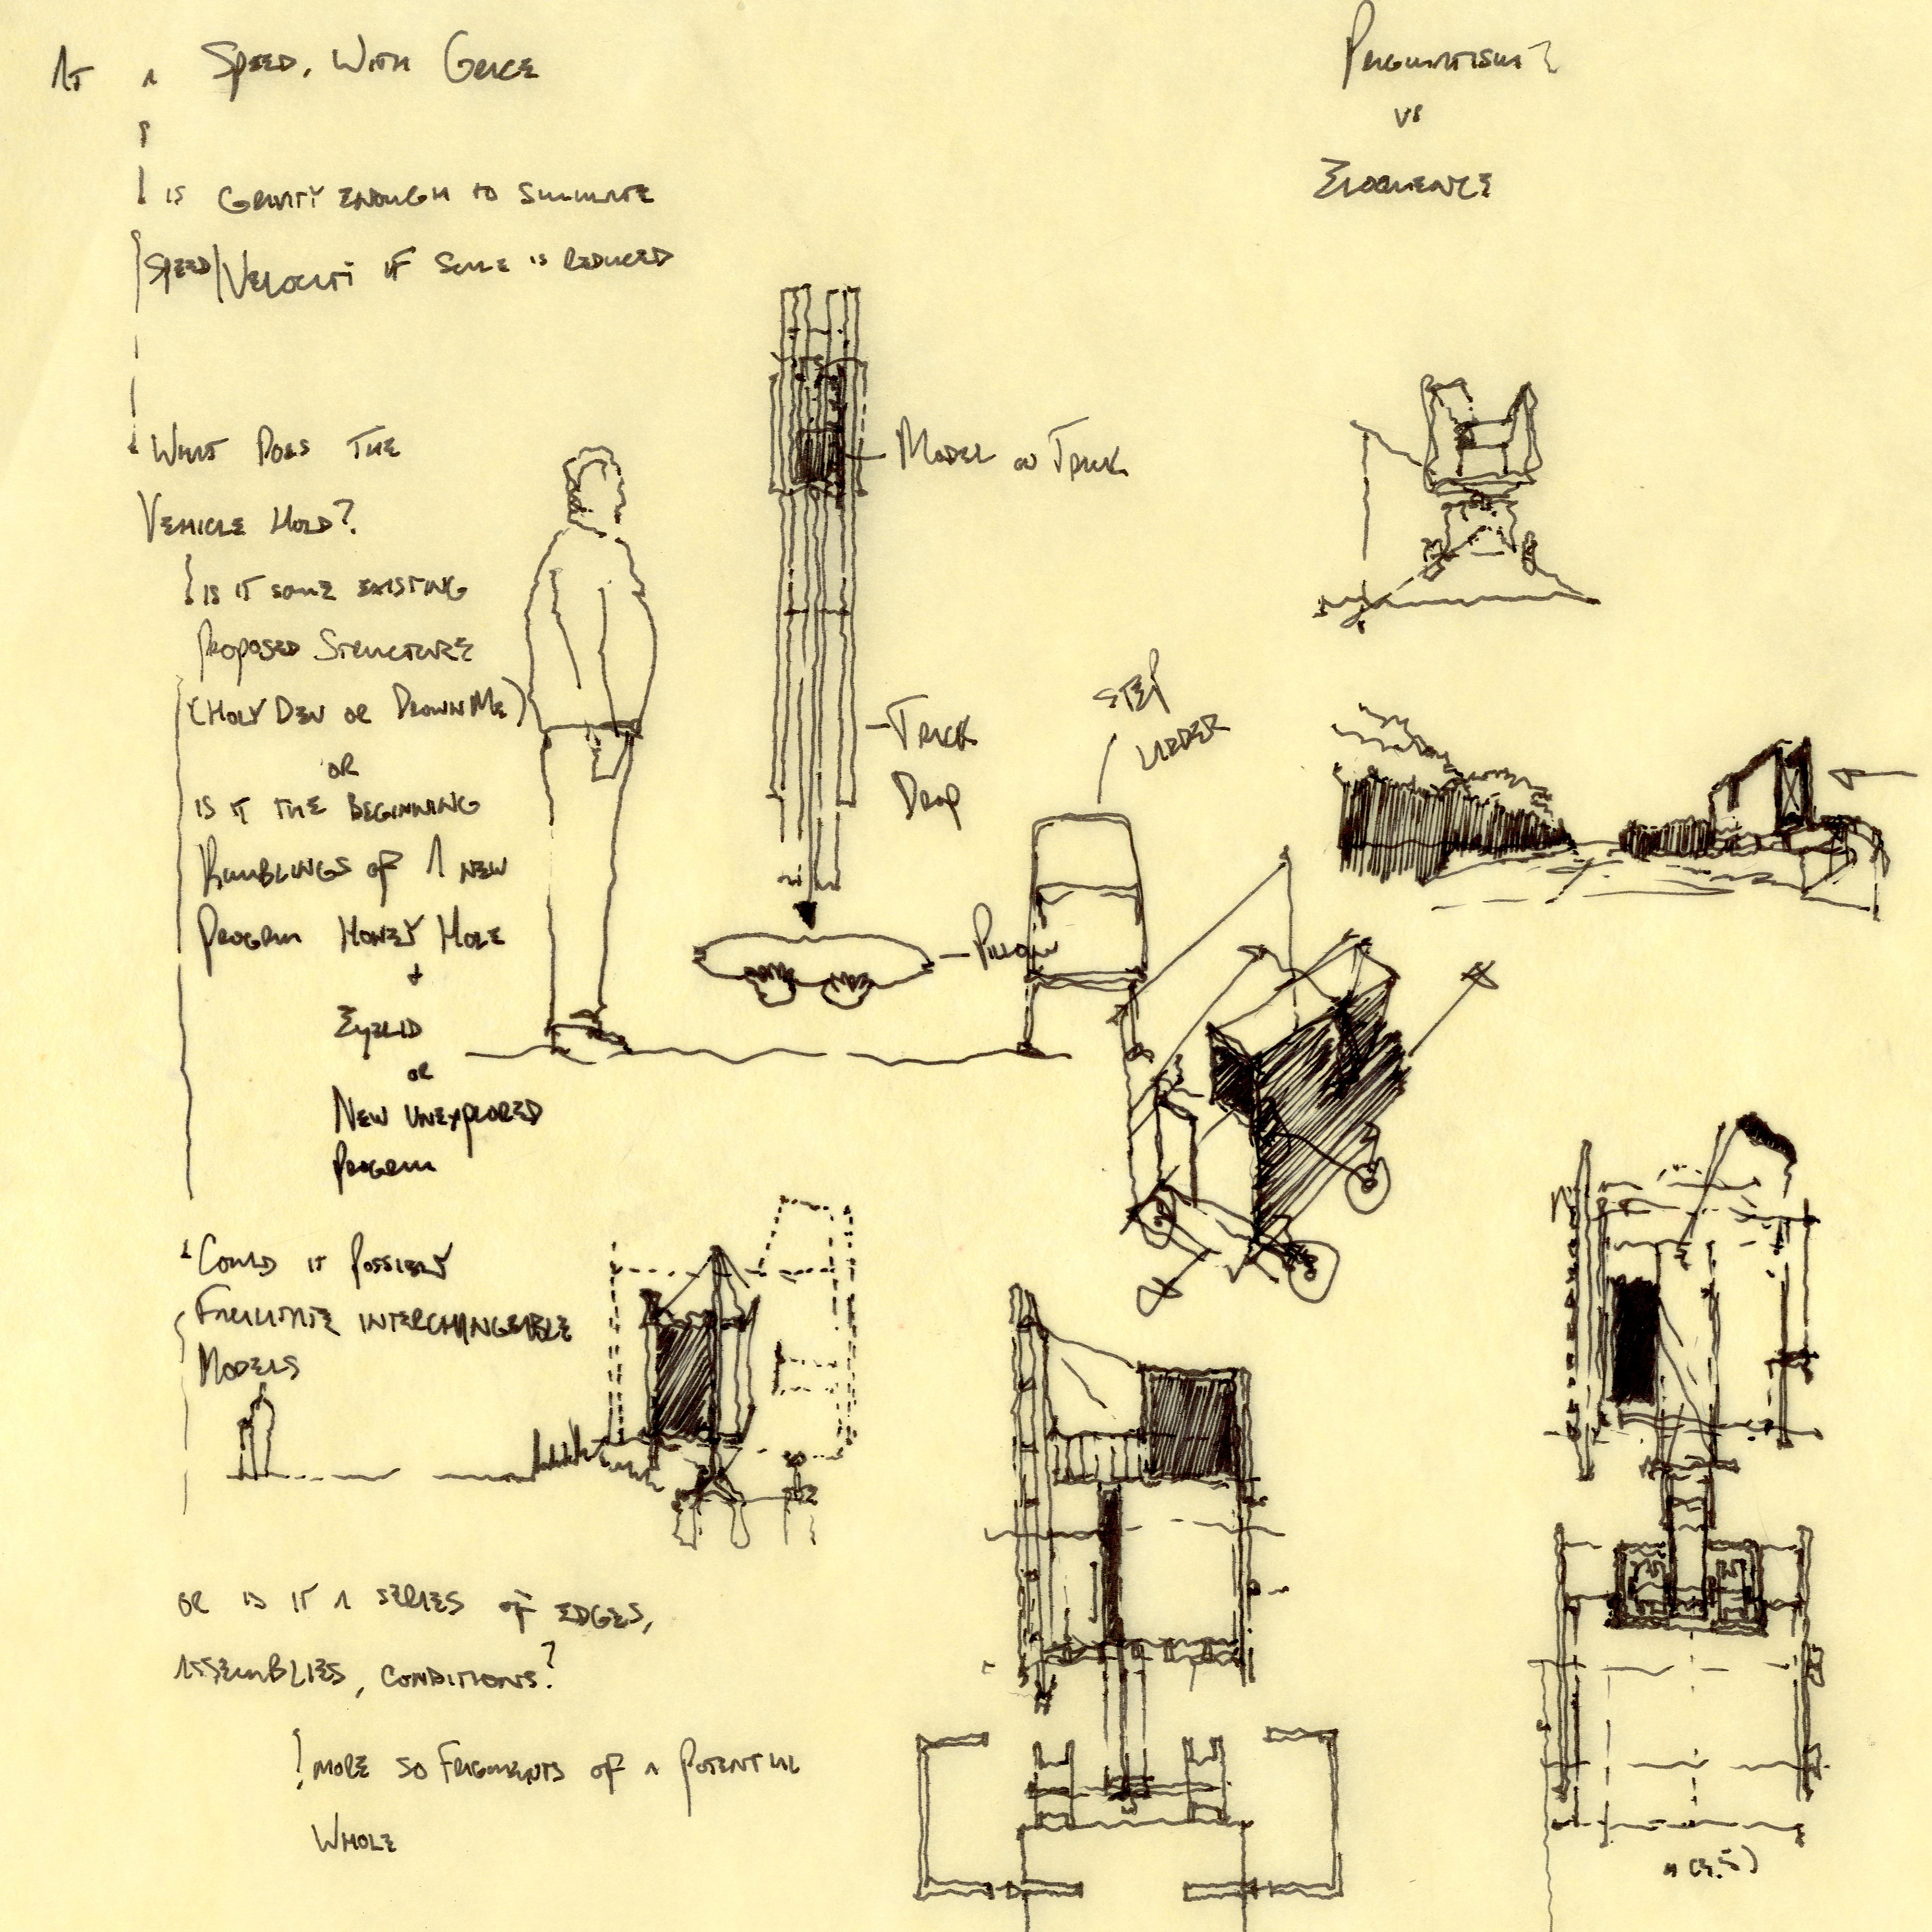 At a Speed, With Grace
Is Gravity Enough to Simulate
Speed/Velocity if Scale is Reduced
What Does The
Vehicle Hold?
Is it some existing
Proposed Structure
(Holy Den or Drown Me)
or
is it the beginning
Rumblings of A new
Program Honey Hole
+
Eyelid
or
New Unexplored
Program
Could it Possibly
Facilitate interchangeable
Models
or is it a series of edges,
assemblies, conditions?
more so fragments of a potential
Whole
Pragmatism?
vs
Eloquence
Model on Track
Track
Drop
Pillow
Step
Ladder